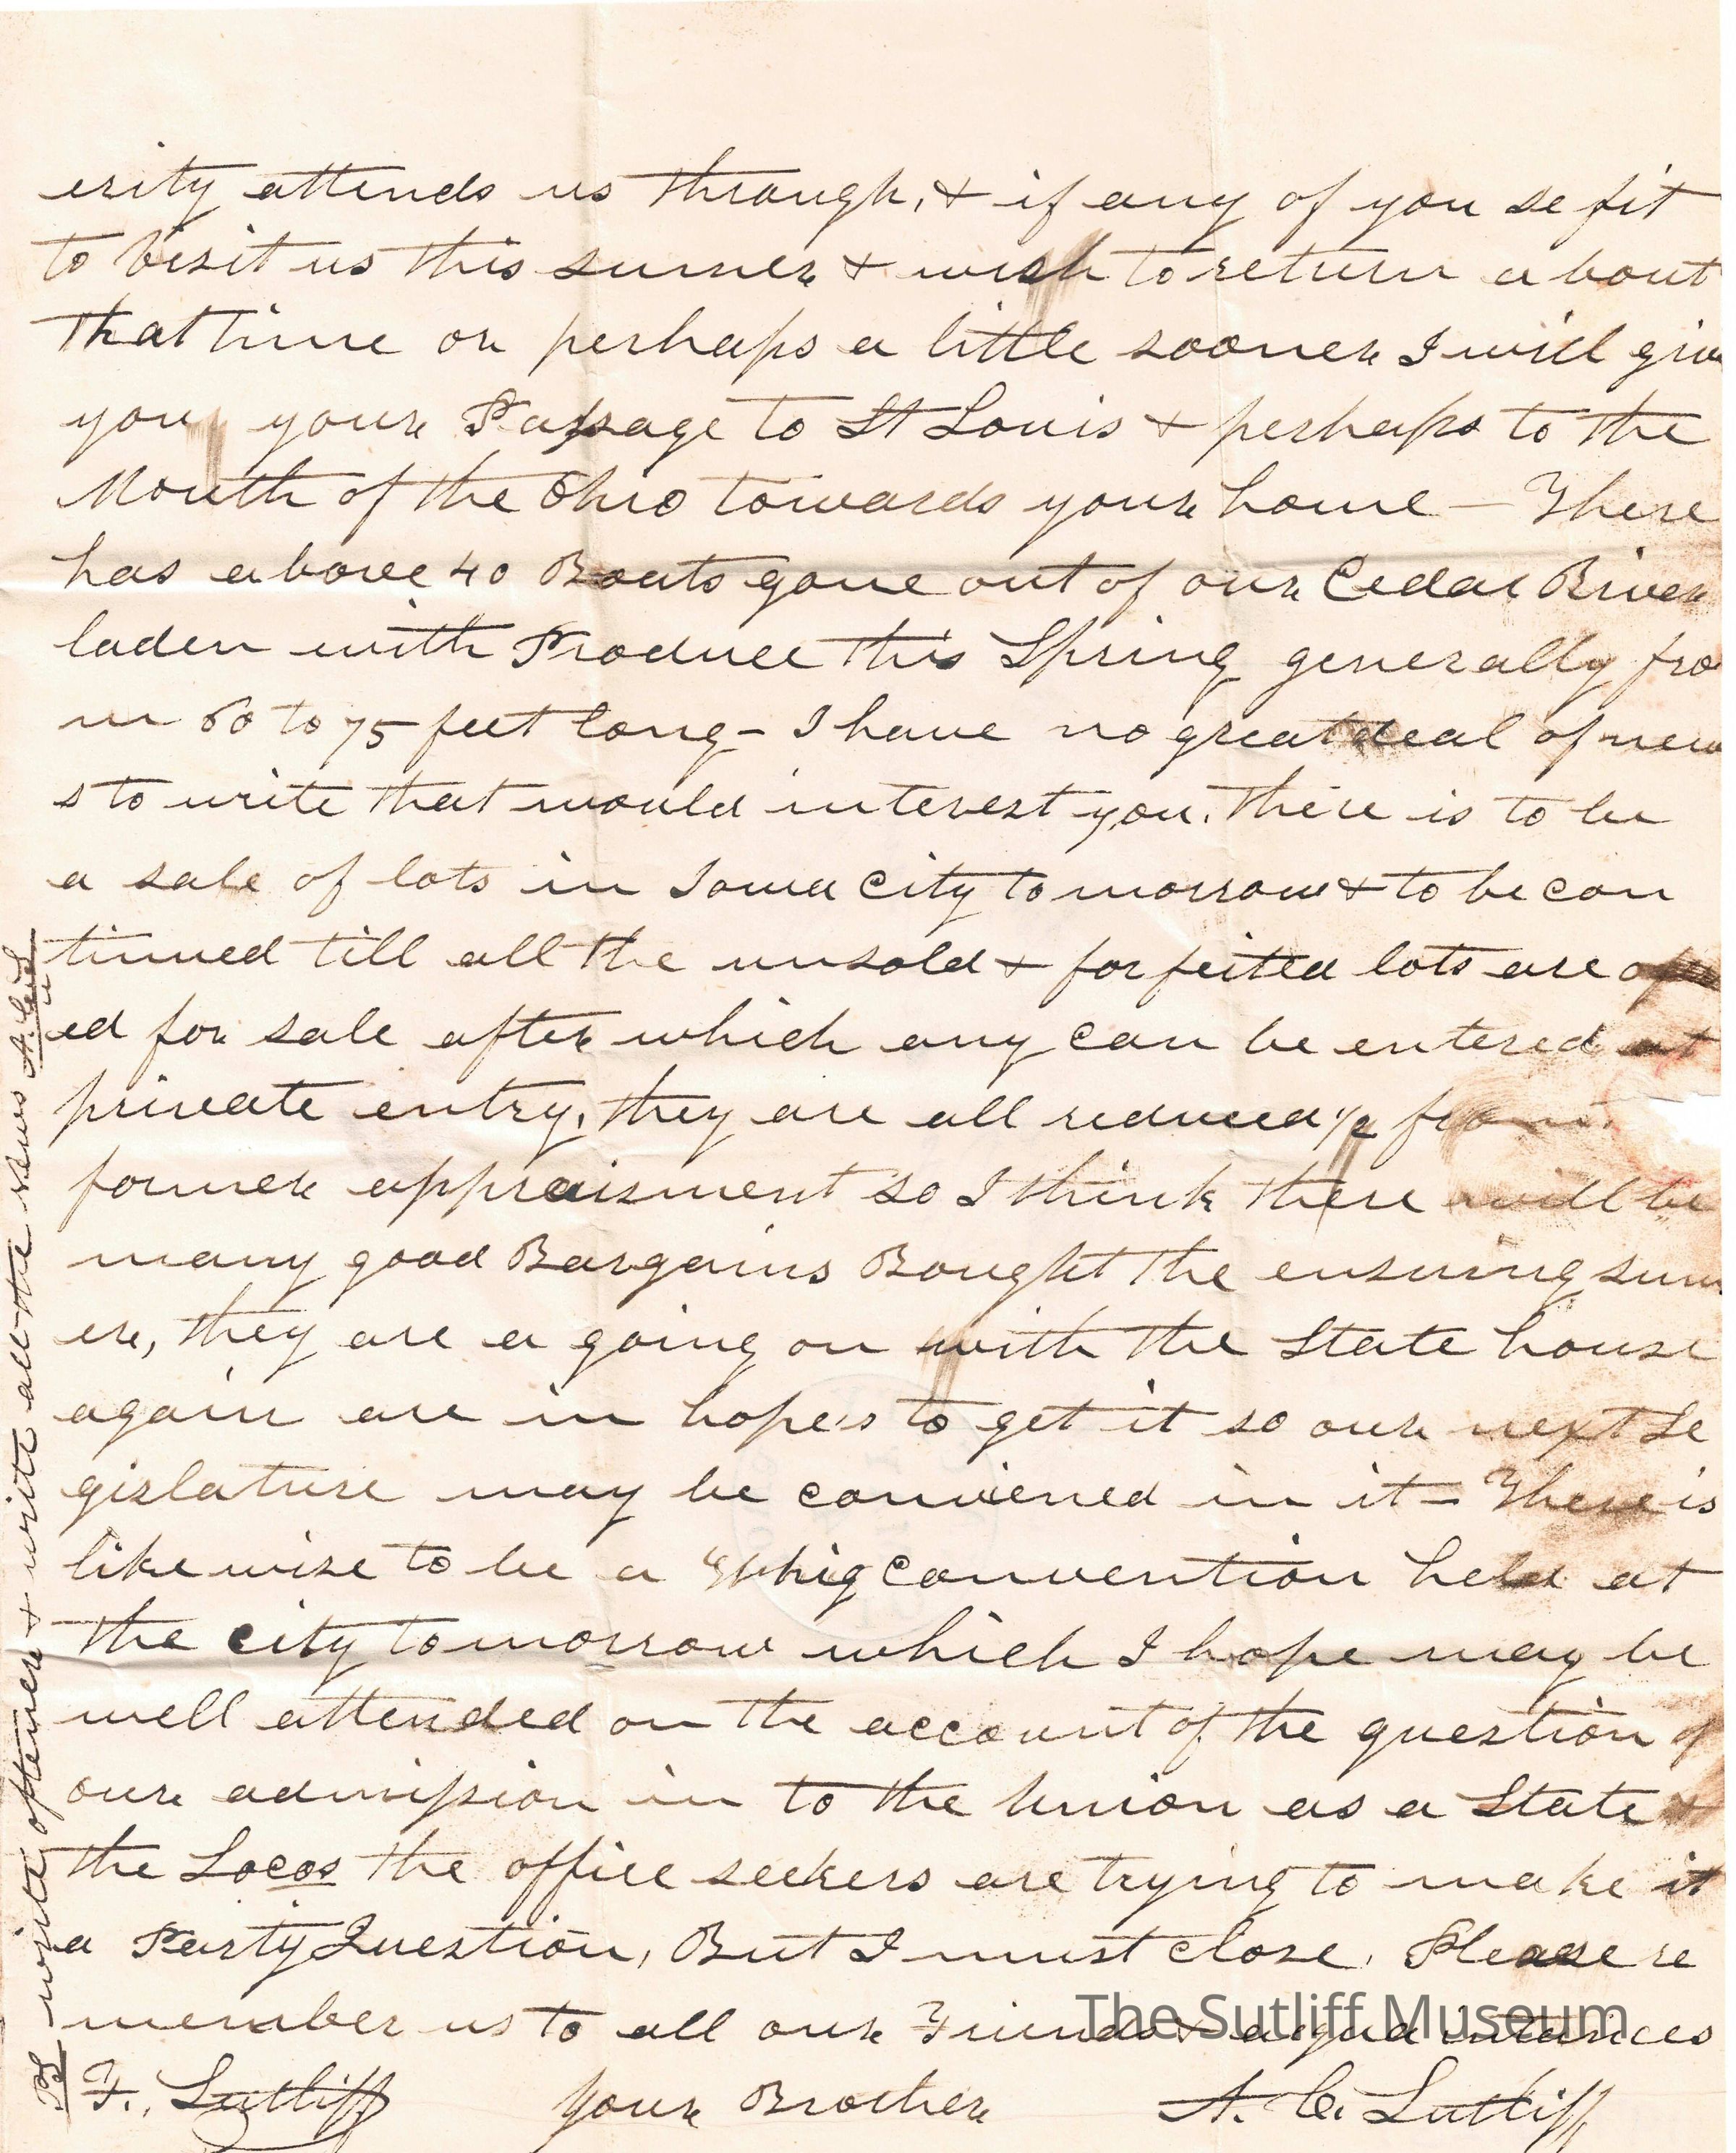 erity attends us through, & if any of you se fit
to visit us this sumer & wish to return about
that time or perhaps a little sooner I will giv
you your Passage to St Louis & perhaps to the
Mouth of the Ohio towards your home — There
has above 40 Boats gone out of our Cedar River
laden with Produce this Spring generally fro
m 60 to 75 feet long - I have no great deal of new
s to write that would interest you. There is to be
a sale of lots in Iowa City tomorrow & to be con
tinued till all the unsold & forfeited lots are
ed for sale after which any can be entered at
private entry, they are all reduced 1/2 from
former appraisment so I think there will be
many good Bargains Bought the ensuing sum
er, they are a going on with the State house
again are in hopes to get it so our next Le
gislature may be convened in it - There is
likewise to be a Whig Convention held at
the city tomorrow which I hope may be
well attended on the account of the question of
our admission in to the Union as a State &
the Locos the office seekers are trying to make it
a Party Question, But I must close. Please re
member us to all our Friends & acquaintances
F. Sutliff Your Brother A. C. Sutliff
PS write oftener & write all the news A.C.S
The Sutliff Museum